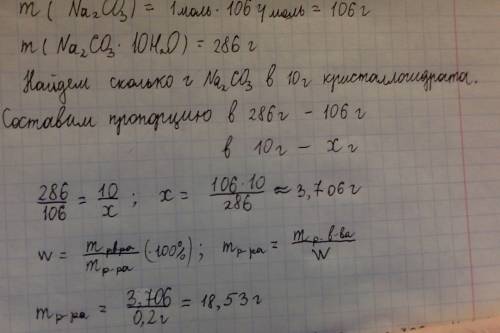 m ( Na₂CO₃) = 1 моль · 106 г/моль = 106 г
m ( Na₂CO₃ · 10H₂O) = 286 г
Найдем сколько г Na₂CO₃ в 10г кристаллогидрата.
Составим пропорцию в 286 г - 106 г
в 10 г - x г
286/106 = 10/x ; x = 106·10/286 ≈ 3,706 г
w = m р.в-ва/m р-ра (·100%) ; m р-ра = m р. в-ва/w
m р-ра = 3,706/0,2 г = 18,53 г